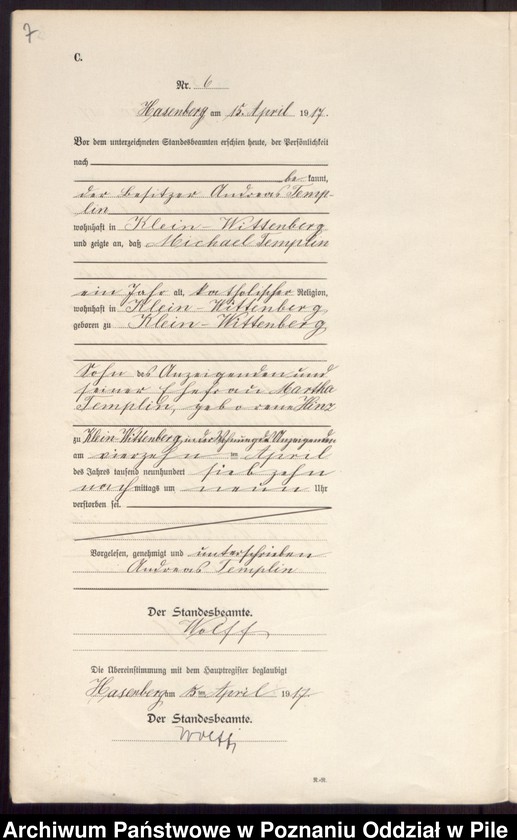 7
C.
Nr. 6
Hasenberg am 15. April 1917.
Vor dem unterzeichneten Standesbeamten erschien heute, der Persönlichkeit
nach
be kannt,
der Besitzer Andreas Temp-
lin
wohnhaft in Klein-Wittenberg
und zeigte an, daß Michael Templin
ein Jahr alt, katholischer Religion,
wohnhaft in Klein-Wittenberg,
geboren zu Klein-Wittenberg,
Sohn des Anzeigenden und
seiner Ehefrau Martha
Templin, geborene Hinz
zu Klein-Wittenberg, in der Wohnung des Anzeigenden
am vierzehn ten April
des Jahres tausend neunhundert siebzehn
nach mittags um neun Uhr
verstorben sei.
Vorgelesen, genehmigt und unterschrieben
Andreas Templin
Der Standesbeamte.
Wolff
Die Übereinstimmung mit dem Hauptregister beglaubigt
Hasenberg am 15ten April 1917.
Der Standesbeamte.
Wolff
Archiwum Państwowe w Poznaniu Oddział w Pile